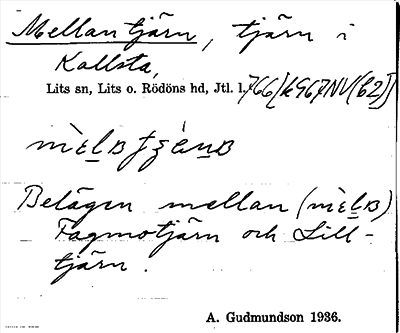 Mellantjärn, tjärn i
Kallsta,
Lits sn, Lits o. Rödöns hd, Jtl. l.
Belägen mellan
Fagmotjärn och Lill-
tjärn.
A. Gudmundson 1936.